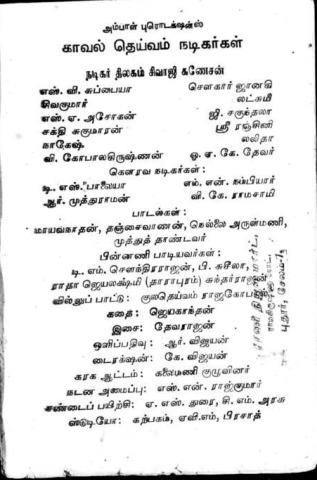 அம்பாள் புரொடக்ஷன்ஸ்
காவல் தெய்வம் நடிகர்கள்
நடிகர் திலகம் சிவாஜி கணேசன்
எஸ். வி. சுப்பையா சௌகார் ஜானகி
சிவகுமார் லட்சுமி
எஸ். ஏ. அசோகன் ஜி. சகுந்தலா
சக்தி சுகுமாரன் ஸ்ரீ ரஞ்சினி
நாகேஷ் லலிதா
வி. கோபாலகிருஷ்ணன் ஓ. ஏ. கே. தேவர்
கௌரவ நடிகர்கள் :
டி. எஸ். பாலையா எம். என். நம்பியார்
ஆர். முத்துராமன் வி. கே. ராமசாமி
பாடல்கள் :
மாயவநாதன், தஞ்சைவாணன், நெல்லை அருள்மணி,
முத்துத் தாண்டவர்
பின்னணி பாடியவர்கள் :
டி. எம். சௌந்திரராஜன், பி. சுசீலா,
ராதா ஜெயலக்ஷ்மி (தாராபுரம்) சுந்தர்ராஜன்
வில்லுப் பாட்டு : குலதெய்வம் ராஜகோபால்
கதை : ஜெயகாந்தன்
இசை: தேவராஜன்
ஒளிப்பதிவு : ஆர். விஜயன்
டைரக்ஷன் : கே. விஜயன்
கரக ஆட்டம் : கலைமணி குழுவினர்
நடன அமைப்பு: எஸ். என். ராஜ்குமார்
சண்டைப் பயிற்சி: ஏ. எஸ். துரை, சி. எம். அரசு
ஸ்டுடியோ: கற்பகம், ஏவி.எம், பிரசாத்